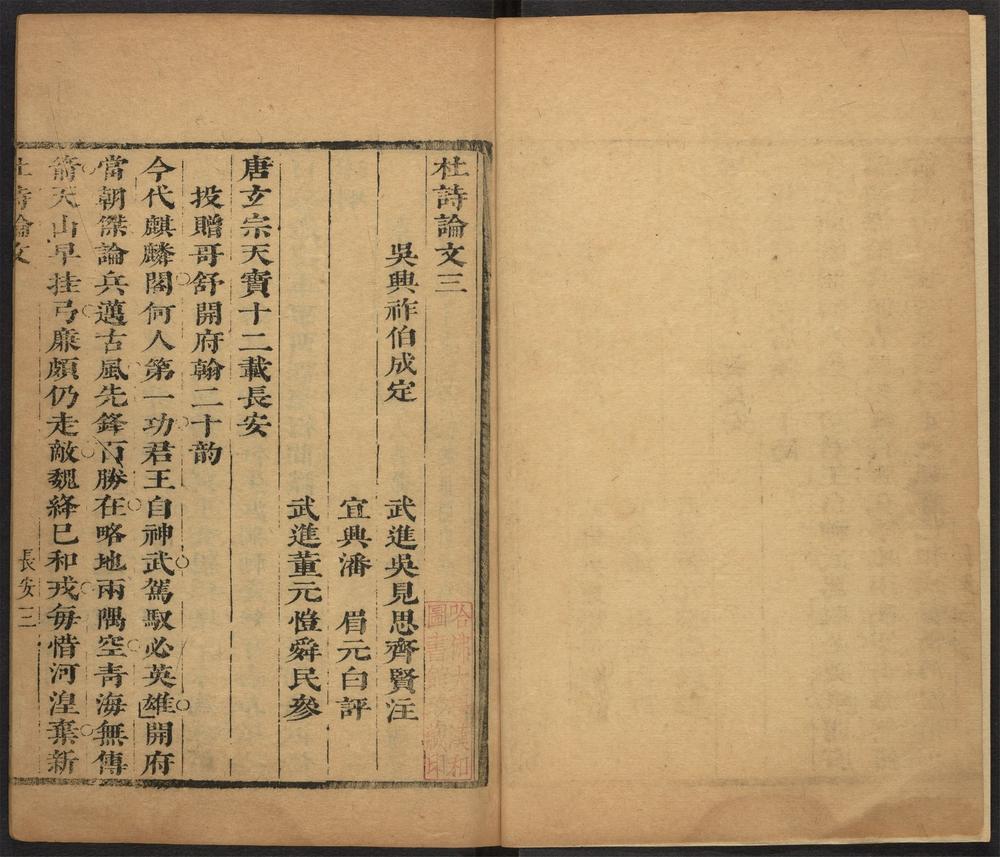 杜詩論文三
吳興祚伯成定　武進吳見思齊賢注
宜興潘　眉元白評
武進董元愷舜民參
唐玄宗天寶十二載長安
投贈哥舒開府翰二十韵
今代麒麟閣何人第一功君王自神武駕馭必英雄開府
當朝傑論兵邁古風先鋒百勝在略地兩隅空青海無傳
箭天山早挂弓廉頗仍走敵魏絳已和戎每惜河湟棄新
杜詩論文　長安三
哈佛大學漢和
圖書館珍藏印